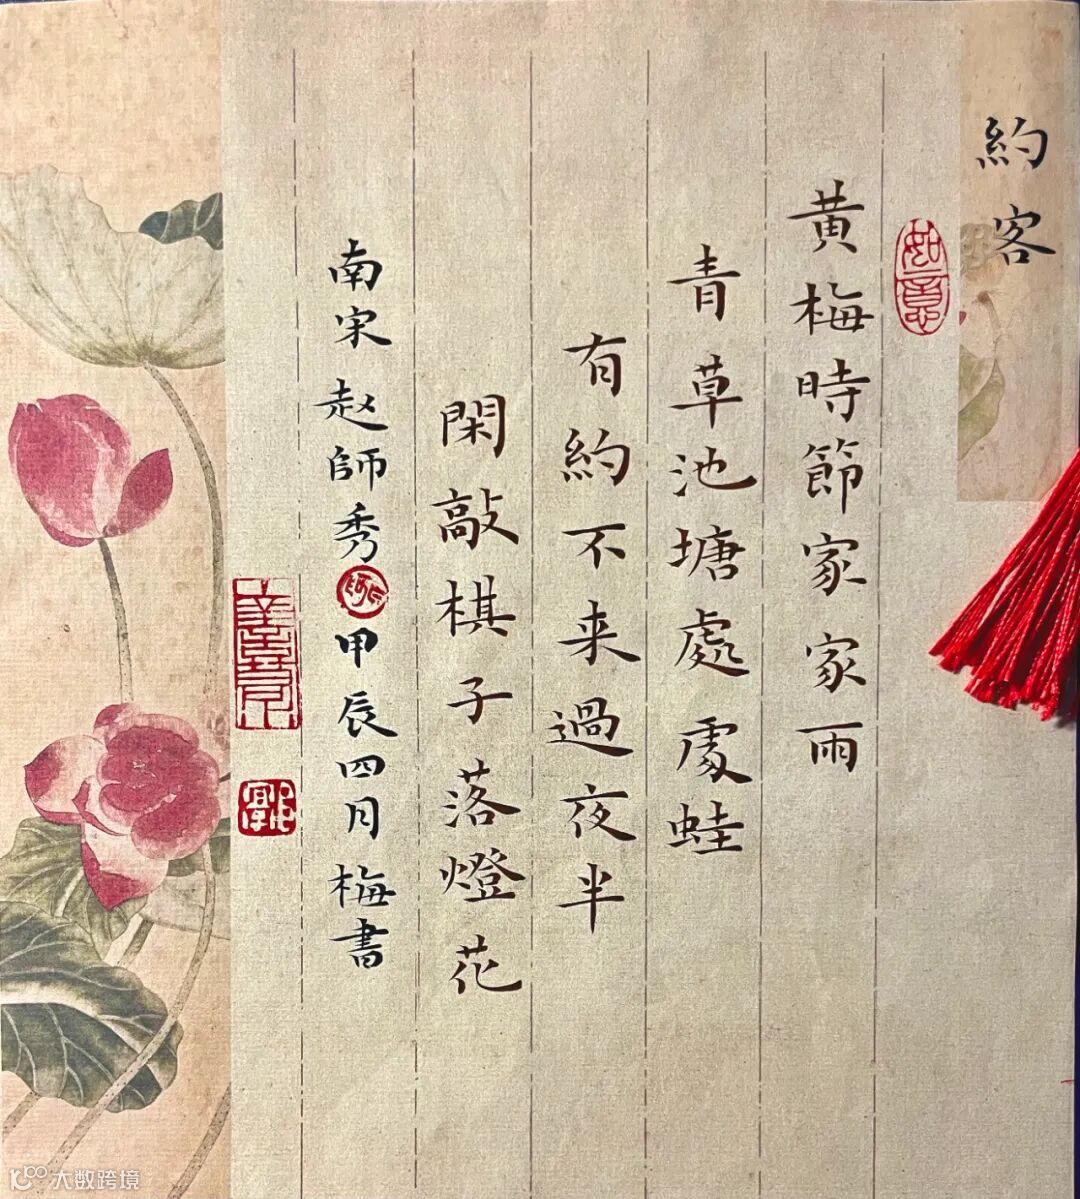 約客
如意
黄梅時節家家雨
青草池塘處處蛙
有約不来過夜半
閑敲棋子落燈花
南宋赵師秀
甲辰四月梅書
大数跨境